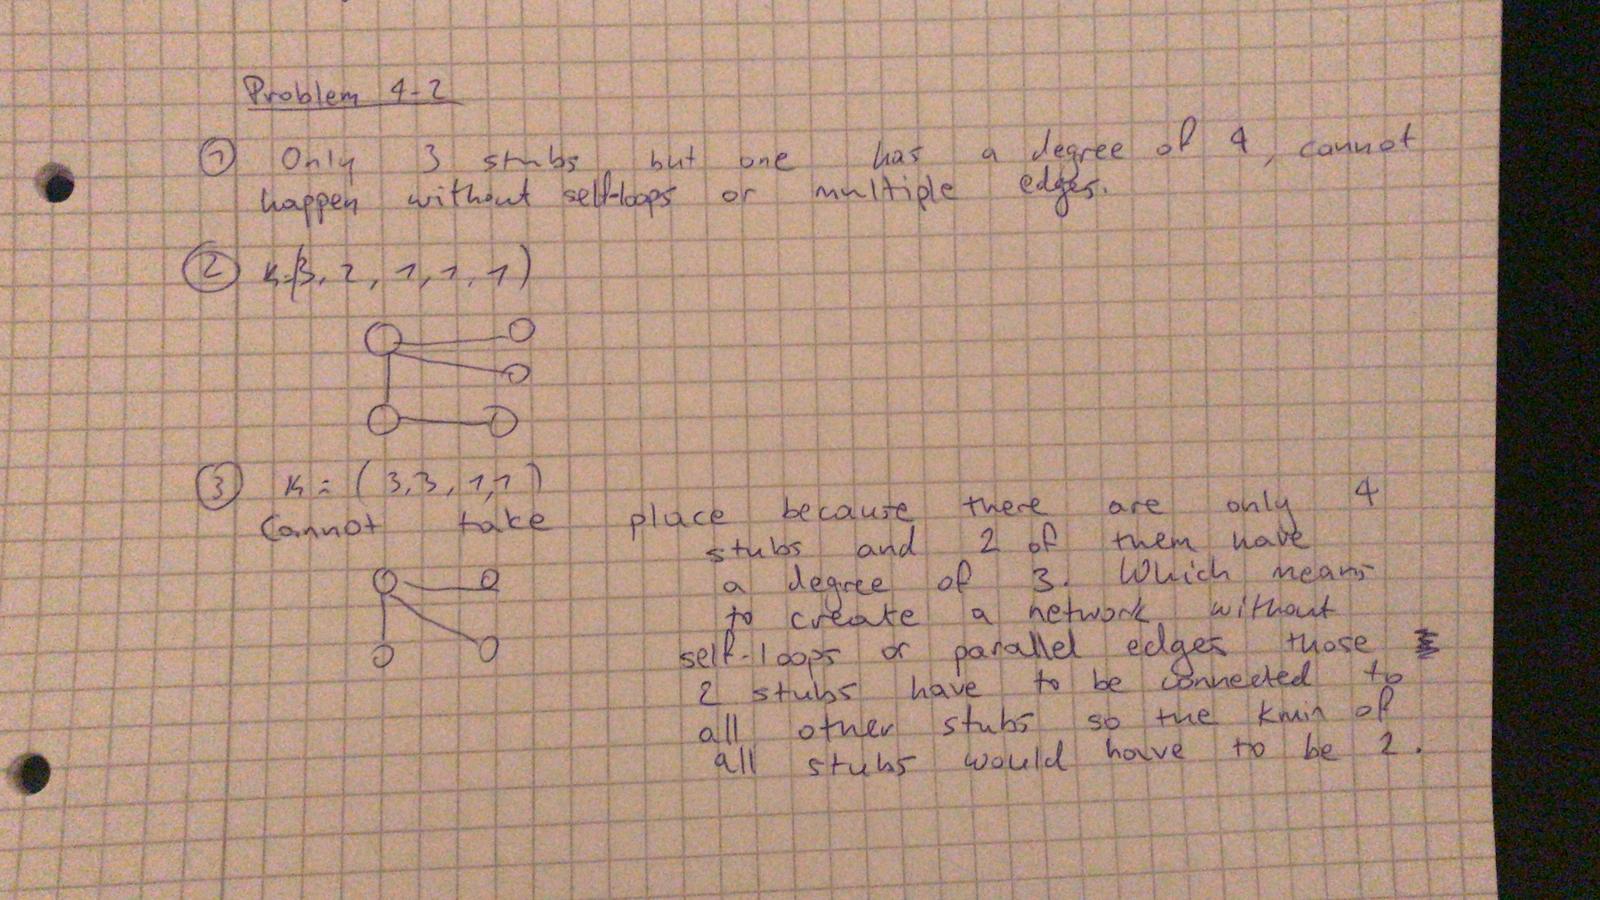 Problem 4-2
① Only 3 stubs but one has a degree of 4, cannot
happen without self-loops or multiple edges.
② k=(3, 2, 1, 1, 1)
③ k = (3,3,1,1)
Cannot take place because there are only 4
stubs and 2 of them have
a degree of 3. Which means
to create a network without
self-loops or parallel edges those
2 stubs have to be connected to
all other stubs so the kmin of
all stubs would have to be 2.